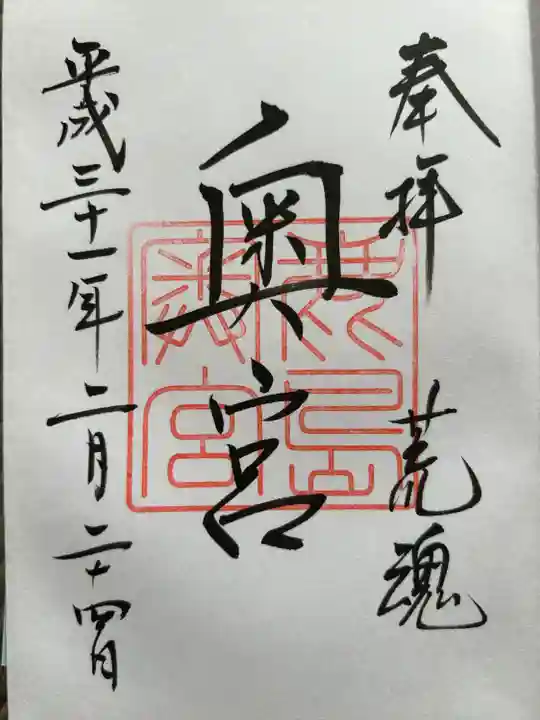 奉拝 荒魂
奥宮
平成三十一年二月二十四日
鹿島
奥宮